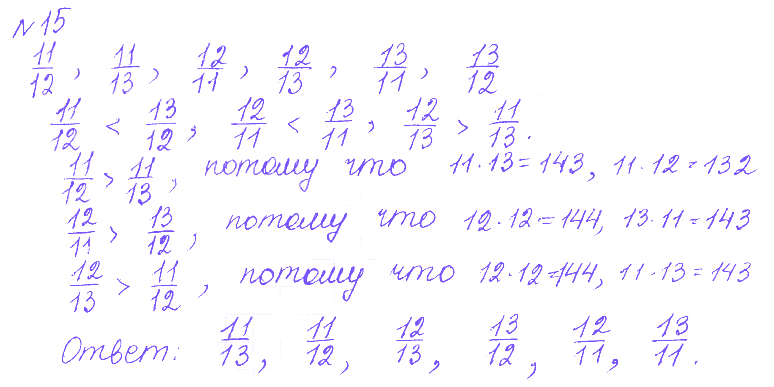 №15
11/12, 11/13, 12/11, 12/13, 13/11, 13/12
11/12 < 13/12, 12/11 < 13/11, 12/13 > 11/13.
11/12 > 11/13, потому что 11·13=143, 11·12=132
12/11 > 13/12, потому что 12·12=144, 13·11=143
12/13 > 11/12, потому что 12·12=144, 11·13=143
Ответ: 11/13, 11/12, 12/13, 13/12, 12/11, 13/11.